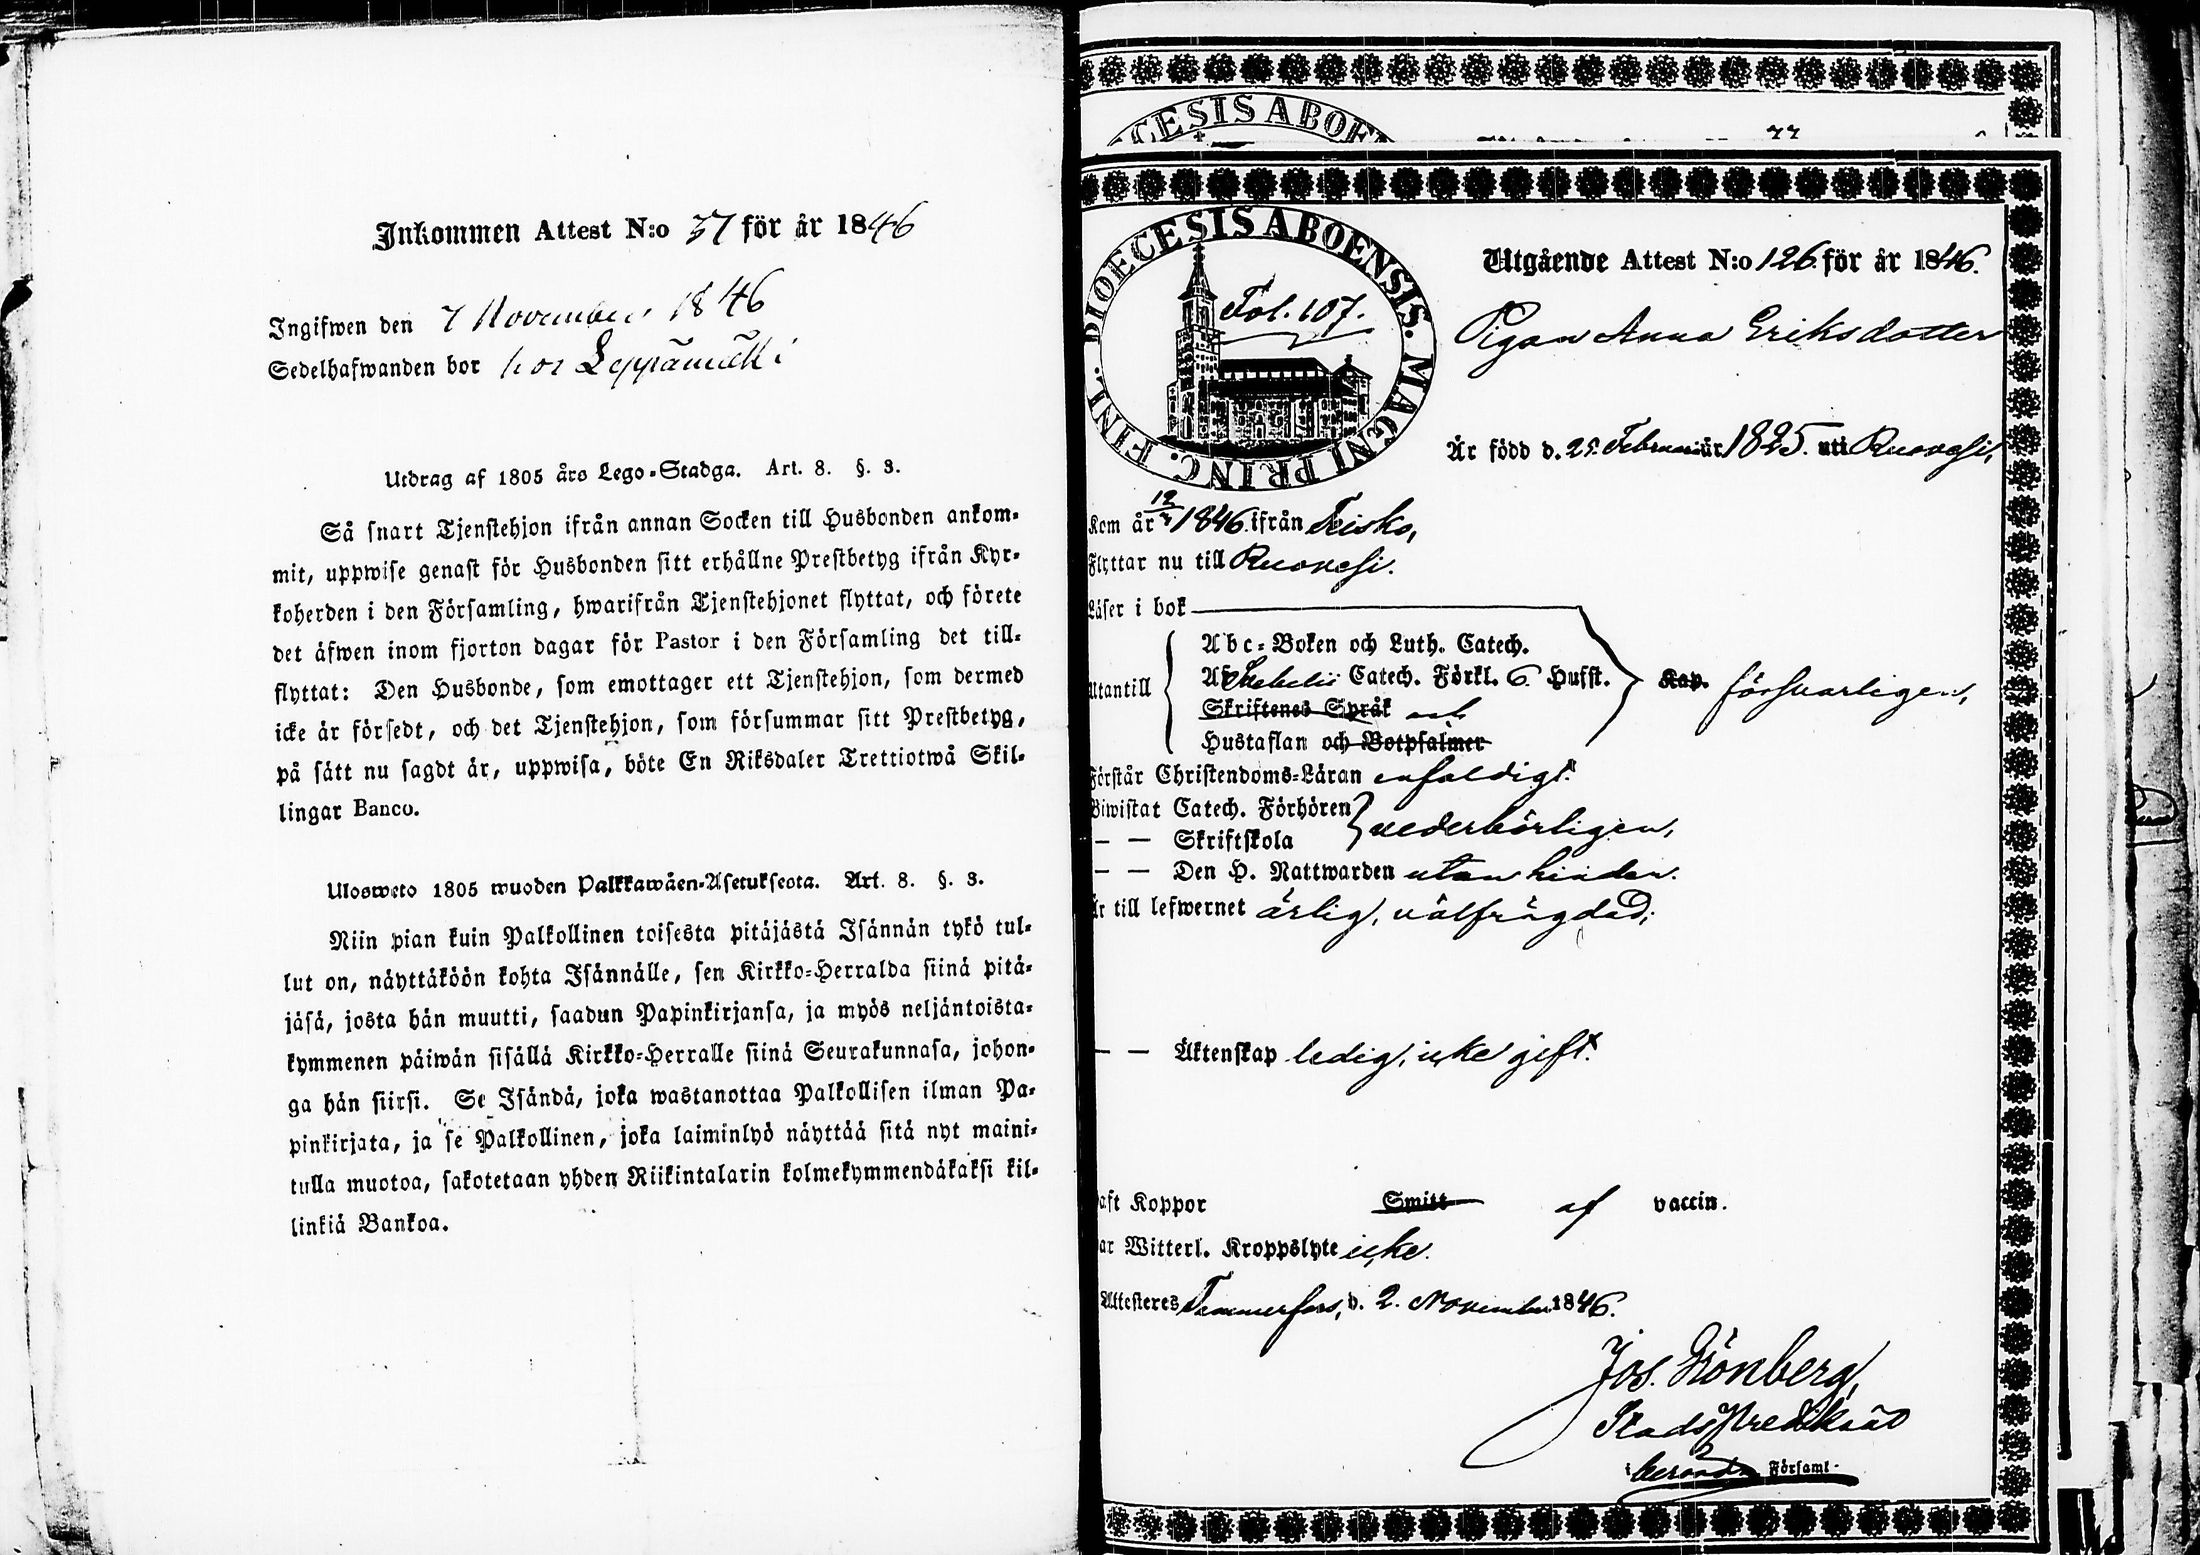 Inkommen Attest N:o 37 för år 1846
Ingifwen den 7 November 1846
Sedelhafwanden bor hos Leppämäki
Utdrag af 1805 års Lego-Stadga. Art. 8. §. 3.
Så snart Tjenstehjon ifrån annan Socken till Husbonden ankom-
mit, uppwise genast för Husbonden sitt erhållne Prestbetyg ifrån Kyr-
koherden i den Församling, hwarifrån Tjenstehjonet flyttat, och förete
det äfwen inom fjorton dagar för Pastor i den Församling det till-
flyttat: Den Husbonde, som emottager ett Tjenstehjon, som dermed
icke är försedt, och det Tjenstehjon, som försummar sitt Prestbetyg,
på sätt nu sagdt är, uppwisa, böte En Riksdaler Trettiotwå Skil-
lingar Banco.
Ulosweto 1805 wuoden Palkkawäen-Asetuksesta. Art. 8. §. 3.
Niin pian kuin Palkollinen toisesta pitäjästä Isännän tykö tul-
lut on, näyttäköön kohta Isännälle, sen Kirkko-Herralda siinä pitä-
jäsä, josta hän muutti, saadun Papinkirjansa, ja myös neljäntoista-
kymmenen päiwän sisällä Kirkko-Herralle siinä Seurakunnasa, johon-
ga hän siirsi. Se Isändä, joka wastanottaa Palkollisen ilman Pa-
pinkirjata, ja se Palkollinen, joka laiminlyö näyttää sitä nyt maini-
tulla muotoa, sakotetaan yhden Riikintalarin kolmekymmendäkaksi kil-
linkiä Bankoa.
CESIS ABOEN
DIOECESIS ABOENSIS. MAGNI PRINC. FINL.
Fol. 107.
Utgående Attest N:o 126 för år 1846.
Pigan Anna Eriksdotter
Är född d. 25 Februari år 1825. uti Ruovesi,
Kom år 12/3 1846. ifrån Teisko,
Flyttar nu till Ruovesi.
Läser i bok
Utantill
Abc-Boken och Luth. Catech.
Af Svebelii Catech. Förkl. 6. Hufst. Kap. försvarligen,
Skriftenes Språk och
Hustaflan och Botpsalmer
Förstår Christendoms-Läran enfaldigt.
Biwistat Catech. Förhören
— — Skriftskola vederbörligen,
— — Den H. Nattwarden utan hinder.
Är till lefwernet ärlig, välfrägdad;
— — Äktenskap ledig, icke gift.
haft Koppor Smitt af vaccin.
har Witterl. Kroppslyte icke.
Attesteres Tammerfors, d. 2. November 1846.
Jos. Grönberg,
StadsPredikant
i Församl.